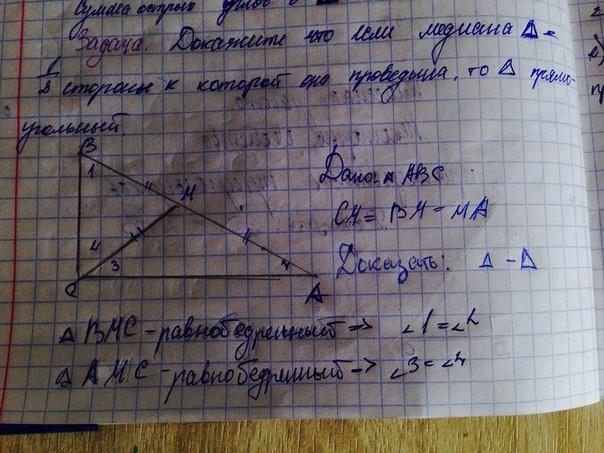 Сумма острых углов
Задача. Докажите что если медиана Δ =
1/2 стороны к которой она проведена, то Δ прямо-
угольный.
B
1
M
4
3
C
A
Дано: Δ ABC
CM = BM = MA
Доказать: Δ - Δ
Δ BMC - равнобедренный => ∠1=∠2
Δ AMC - равнобедренный -> ∠3=∠4